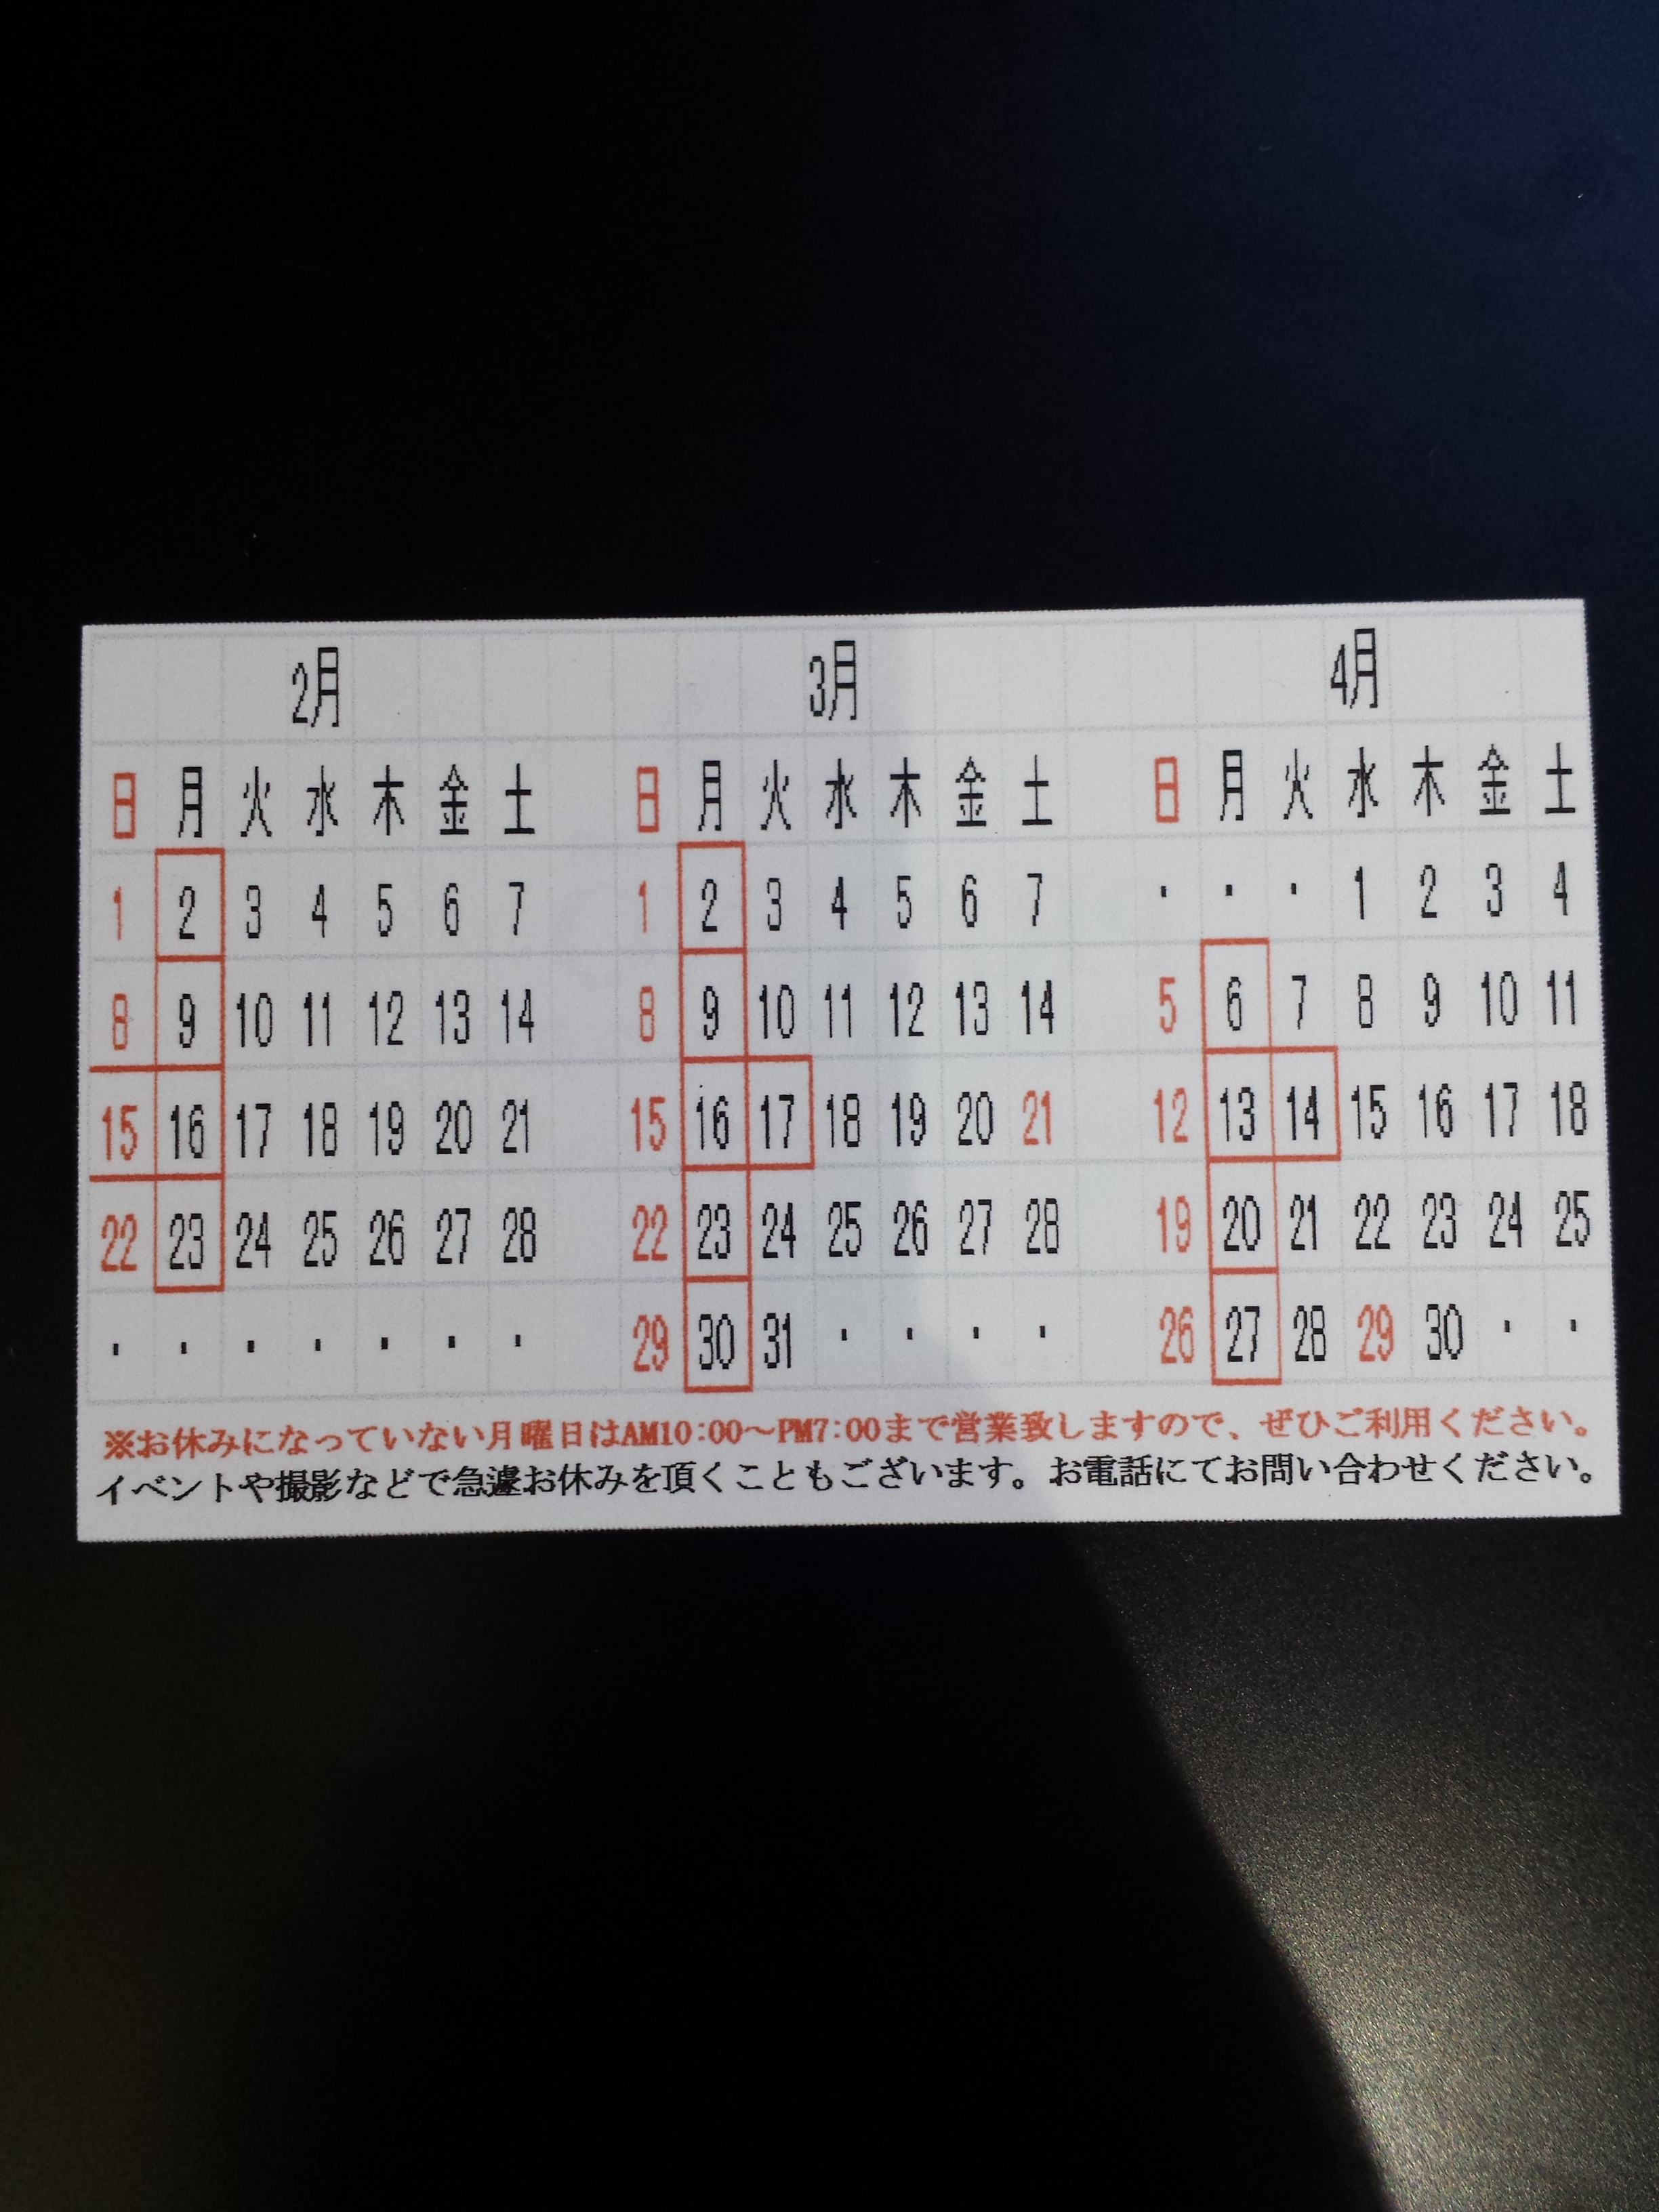 2月 3月 4月
日 月 火 水 木 金 土 日 月 火 水 木 金 土 日 月 火 水 木 金 土
1 2 3 4 5 6 7 1 2 3 4 5 6 7 ・ ・ ・ 1 2 3 4
8 9 10 11 12 13 14 8 9 10 11 12 13 14 5 6 7 8 9 10 11
15 16 17 18 19 20 21 15 16 17 18 19 20 21 12 13 14 15 16 17 18
22 23 24 25 26 27 28 22 23 24 25 26 27 28 19 20 21 22 23 24 25
・ ・ ・ ・ ・ ・ ・ 29 30 31 ・ ・ ・ ・ 26 27 28 29 30 ・ ・
※お休みになっていない月曜日はAM10:00～PM7:00まで営業致しますので、ぜひご利用ください。
イベントや撮影などで急遽お休みを頂くこともございます。お電話にてお問い合わせください。